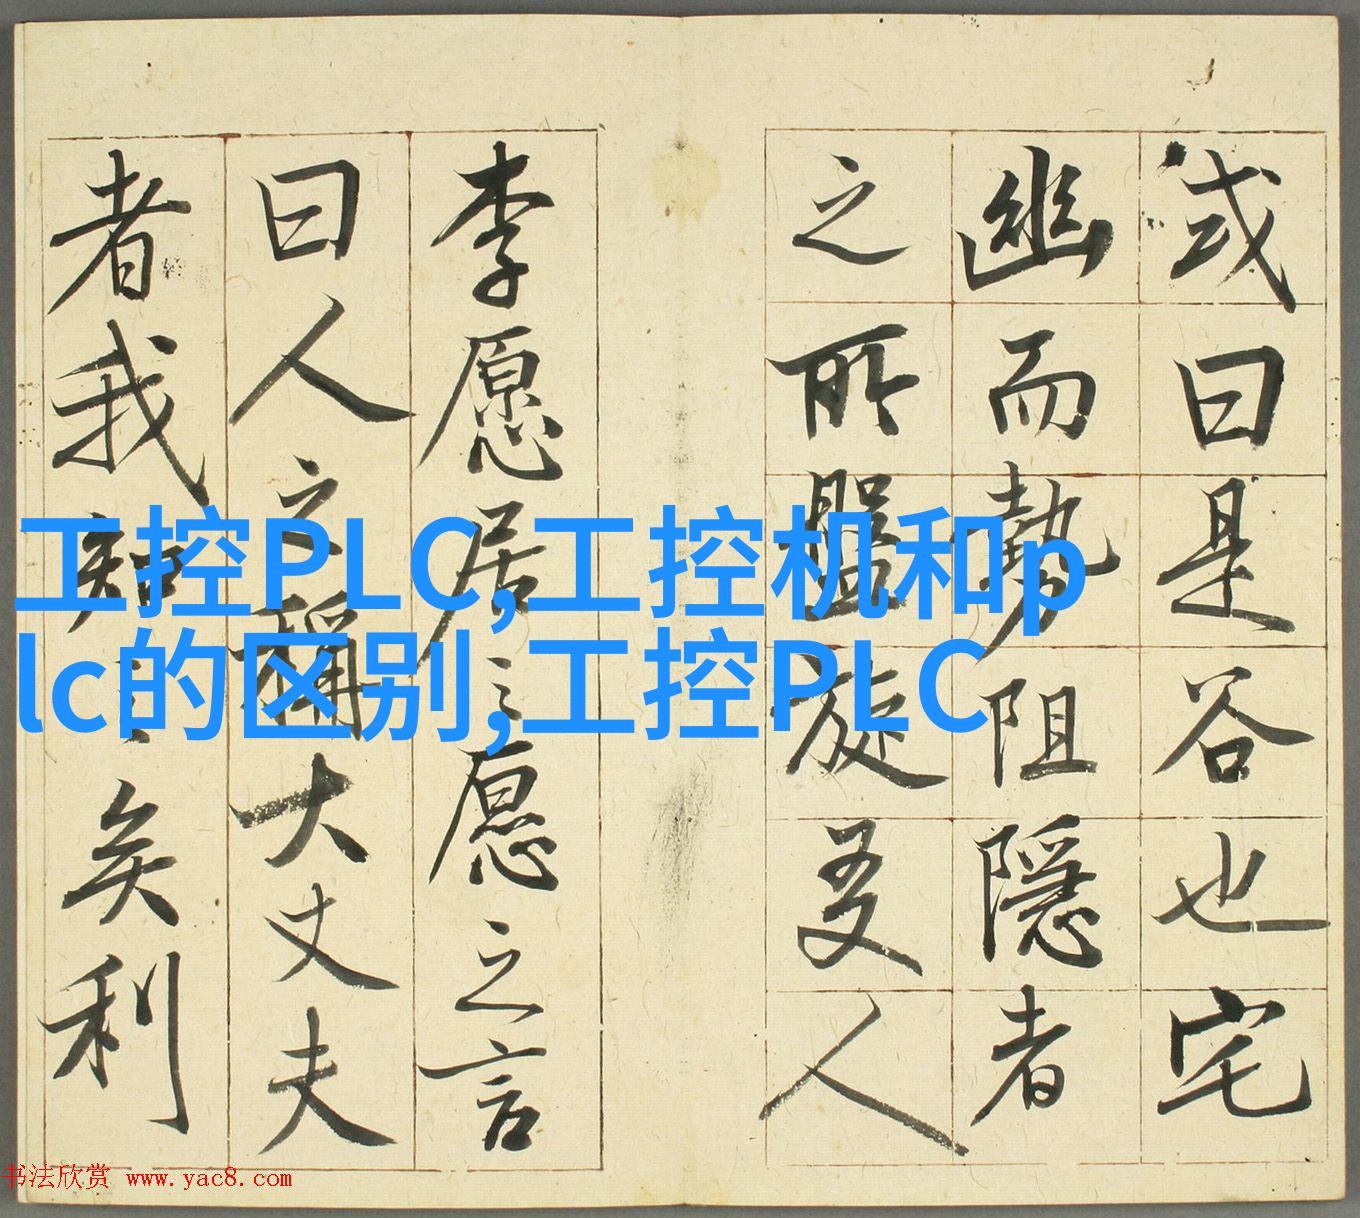 或曰是谷也宅
幽而勢阻隱者
之所盤旋友人
李愿居之愿之言
曰人之稱大丈夫
者我知之矣利
工控PLC,工控机和p
lc的区别,工控PLC
书法欣赏 www.yac8.com